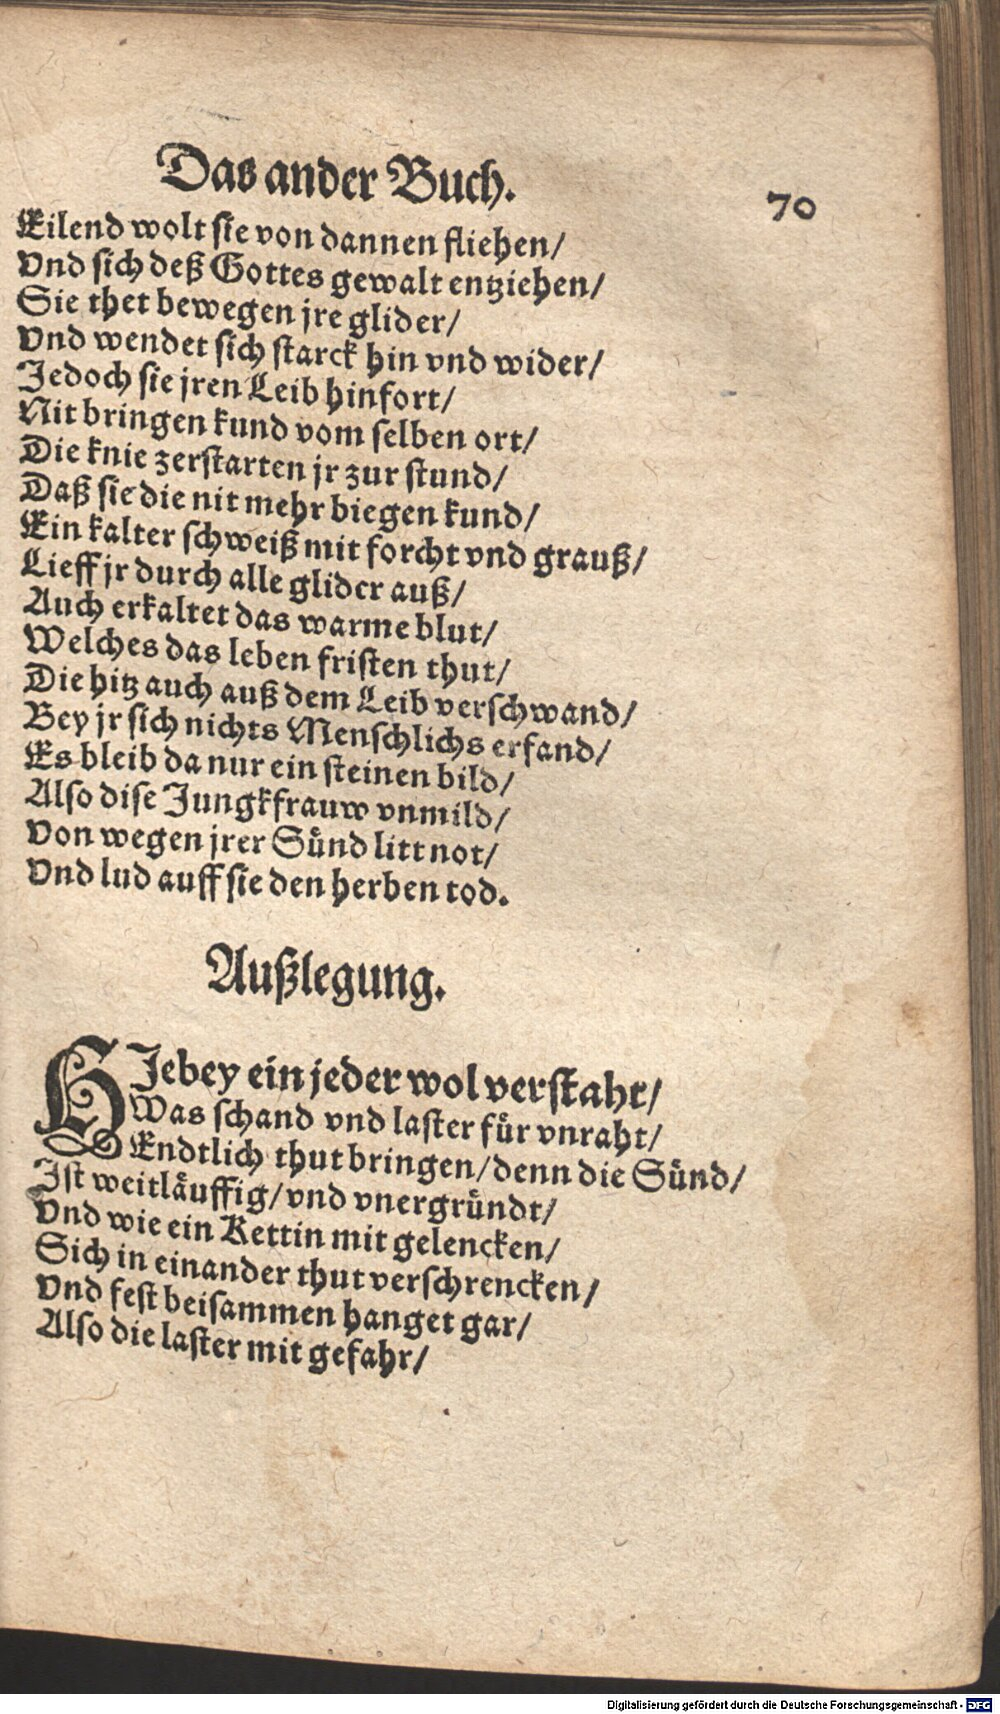 Das ander Buch.
70
Eilend wolt sie von dannen fliehen/
Vnd sich deß Gottes gewalt entziehen/
Sie thet bewegen jre glider/
Vnd wendet sich starck hin vnd wider/
Jedoch sie jren Leib hinfort/
Nit bringen kund vom selben ort/
Die knie zerstarten jr zur stund/
Daß sie die nit mehr biegen kund/
Ein kalter schweiß mit forcht vnd grauß/
Lieff jr durch alle glider auß/
Auch erkaltet das warme blut/
Welches das leben fristen thut/
Die hitz auch auß dem Leib verschwand/
Bey jr sich nichts Menschlichs erfand/
Es bleib da nur ein steinen bild/
Also dise Jungkfrauw vnmild/
Von wegen jrer Sünd litt not/
Vnd lud auff sie den herben tod.
Außlegung.
HJebey ein jeder wol verstaht/
Was schand vnd laster für vnraht/
Endtlich thut bringen/denn die Sünd/
Ist weitläuffig/vnd vnergründt/
Vnd wie ein Kettin mit gelencken/
Sich in einander thut verschrencken/
Vnd fest beisammen hanget gar/
Also die laster mit gefahr/
Digitalisierung gefördert durch die Deutsche Forschungsgemeinschaft - DFG